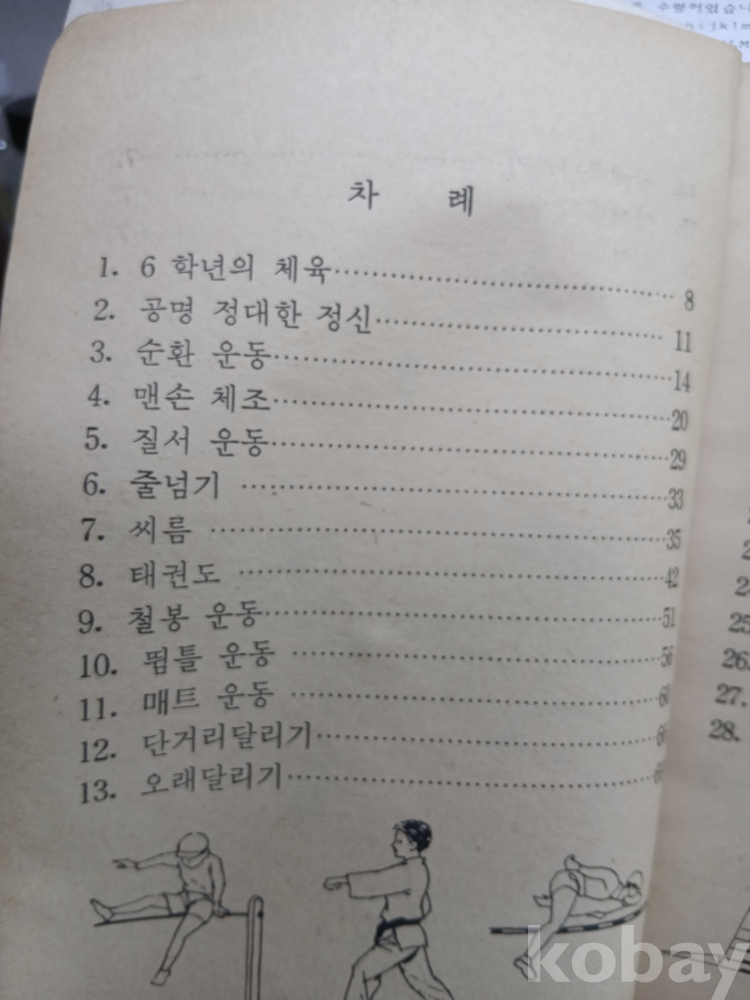 차 례
1. 6 학년의 체육 8
2. 공명 정대한 정신 11
3. 순환 운동 14
4. 맨손 체조 20
5. 질서 운동 29
6. 줄넘기 33
7. 씨름 35
8. 태권도 42
9. 철봉 운동 51
10. 뜀틀 운동 56
11. 매트 운동
12. 단거리달리기
13. 오래달리기
25
26.
27.
28.
kobay